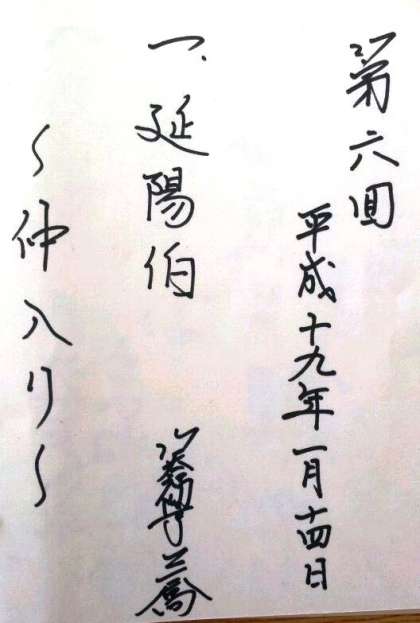 第六回
平成十九年一月十四日
一、延陽伯
笑福亭三喬
〜仲入り〜